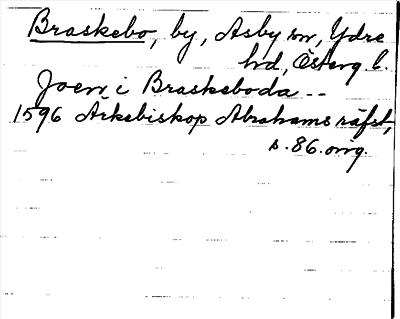 Braskebo, by, Asby sn, Ydre
hd, Österg l.
Joen i Braskeboda --
1596 Arkebiskop Abrahams räfst,
s. 86. omg.